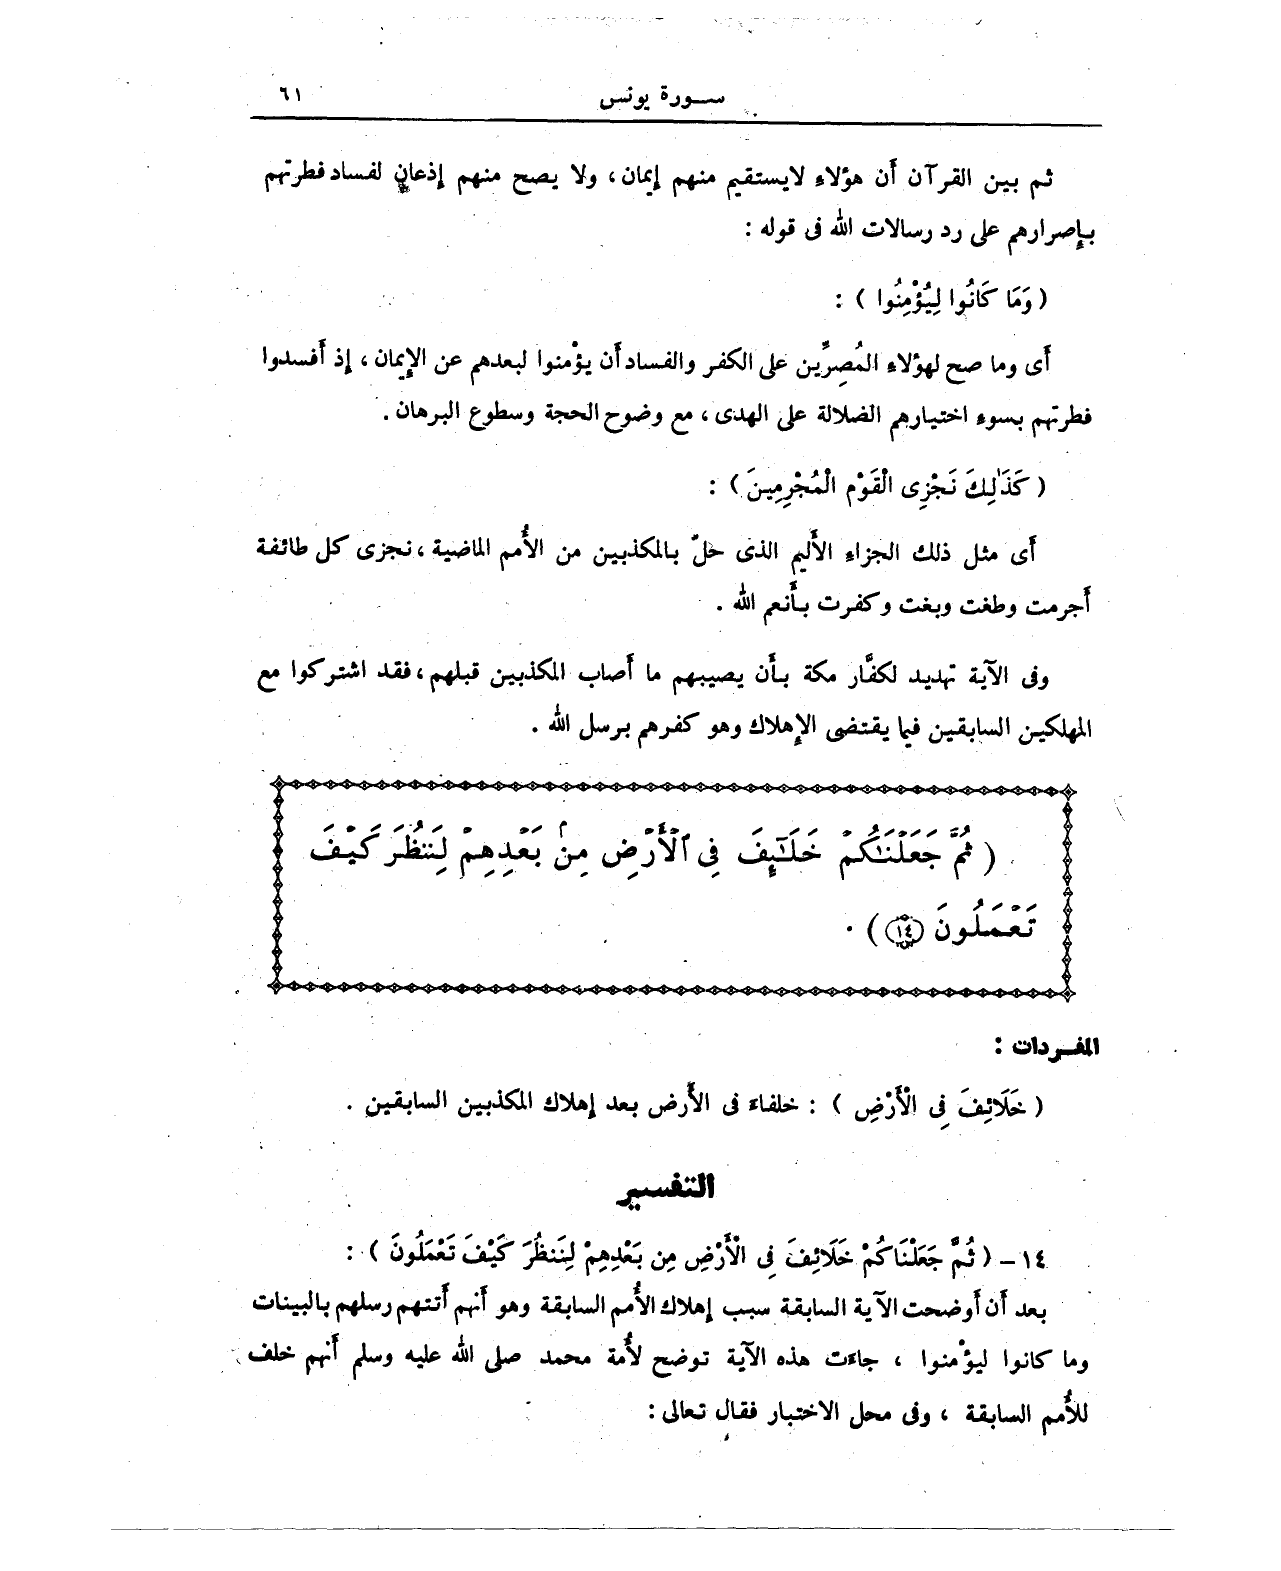 ســورة يونس ٦١
ثم بين القرآن أن هؤلاء لايستقيم منهم إيمان، ولا يصح منهم إذعان لفساد فطرتهم
بإصرارهم على رد رسالات الله فى قوله :
( وَمَا كَانُوا لِيُؤْمِنُوا ) :
أى وما صح لهؤلاء المُصِرِّين على الكفر والفساد أن يؤمنوا لبعدهم عن الإيمان ، إذ أفسدوا
فطرتهم بسوء اختيارهم الضلالة على الهدى ، مع وضوح الحجة وسطوع البرهان .
( كَذَٰلِكَ نَجْزِى الْقَوْم الْمُجْرِمِينَ ) :
أى مثل ذلك الجزاء الأليم الذى حلّ بالمكذبين من الأُمم الماضية ، نجزى كل طائفة
أجرمت وطغت وبغت وكفرت بأنعم الله .
وفى الآية تهديد لكفَّار مكة بأن يصيبهم ما أصاب المكذبين قبلهم ، فقد اشتركوا مع
المهلكين السابقين فيا يقتضى الإهلاك وهو كفرهم برسل الله .
( ثُمَّ جَعَلْنَٰكُمْ خَلَٰٓئِفَ فِى ٱلْأَرْضِ مِنۢ بَعْدِهِمْ لِنَنظُرَ كَيْفَ
تَعْمَلُونَ ١٤ ) .
المفـردات :
( خَلَائِفَ فِى الْأَرْضِ ) : خلفاء فى الأرض بعد إهلاك المكذبين السابقين .
التفسير
١٤ – ( ثُمَّ جَعَلْنَاكُمْ خَلَائِفَ فِى الْأَرْضِ مِن بَعْدِهِمْ لِنَنظُرَ كَيْفَ تَعْمَلُونَ ) :
بعد أن أوضحت الآية السابقة سبب إهلاك الأُمم السابقة وهو أنهم أتتهم رسلهم بالبينات
وما كانوا ليؤمنوا ، جاءت هذه الآية توضح لأُمة محمد صلى الله عليه وسلم أنهم خلف
للأُمم السابقة ، وفى محل الاختبار فقال تعالى :